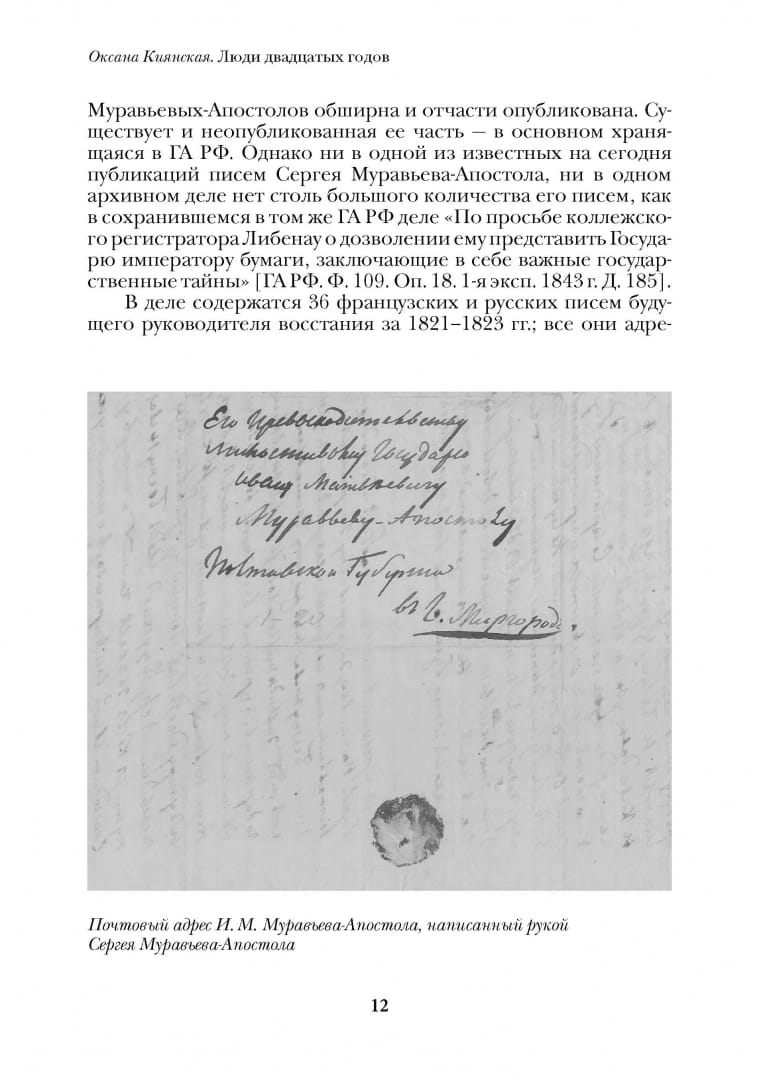 Оксана Киянская. Люди двадцатых годов
Муравьевых-Апостолов обширна и отчасти опубликована. Су-
ществует и неопубликованная ее часть — в основном храня-
щаяся в ГА РФ. Однако ни в одной из известных на сегодня
публикаций писем Сергея Муравьева-Апостола, ни в одном
архивном деле нет столь большого количества его писем, как
в сохранившемся в том же ГА РФ деле «По просьбе коллежско-
го регистратора Либенау о дозволении ему представить Госуда-
рю императору бумаги, заключающие в себе важные государ-
ственные тайны» [ГА РФ. Ф. 109. Оп. 18. 1-я эксп. 1843 г. Д. 185].
В деле содержатся 36 французских и русских писем буду-
щего руководителя восстания за 1821–1823 гг.; все они адре-
Его Превосходительству
Милостивому Государю
Ивану Матвеевичу
Муравьеву-Апостолу
Полтавской Губернии
въ Г. Миргородъ.
1–20
Почтовый адрес И. М. Муравьева-Апостола, написанный рукой
Сергея Муравьева-Апостола
12